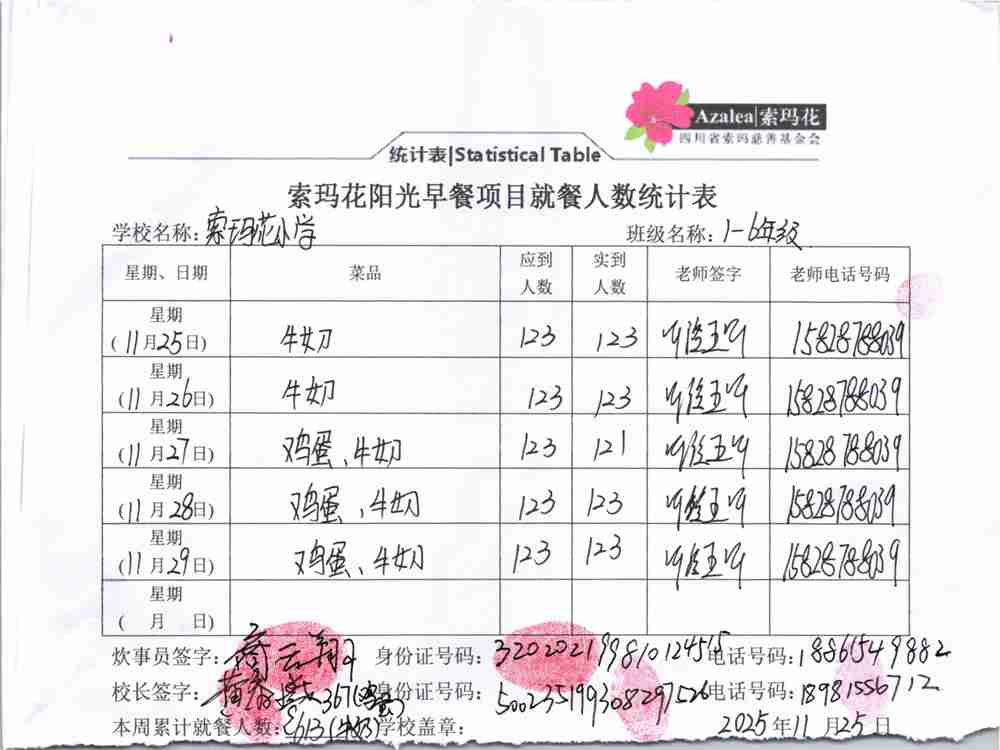 Azalea|索玛花
四川省索玛慈善基金会
统计表|Statistical Table
索玛花阳光早餐项目就餐人数统计表
学校名称:索玛花小学 班级名称:1-6年级
星期、日期 菜品 应到人数 实到人数 老师签字 老师电话号码
星期(11月25日) 牛奶 123 123 15828788039
星期(11月26日) 牛奶 123 123 15828788039
星期(11月27日) 鸡蛋、牛奶 123 121 15828788039
星期(11月28日) 鸡蛋、牛奶 123 123 15828788039
星期(11月29日) 鸡蛋、牛奶 123 123 15828788039
星期( 月 日)
炊事员签字:乔云翔 身份证号码:320202199810124515 电话号码:18861549882
校长签字: 367(鸡蛋) 身份证号码:500235199308297526 电话号码:18981556712
本周累计就餐人数:613(牛奶) 学校盖章: 2025年11月25日